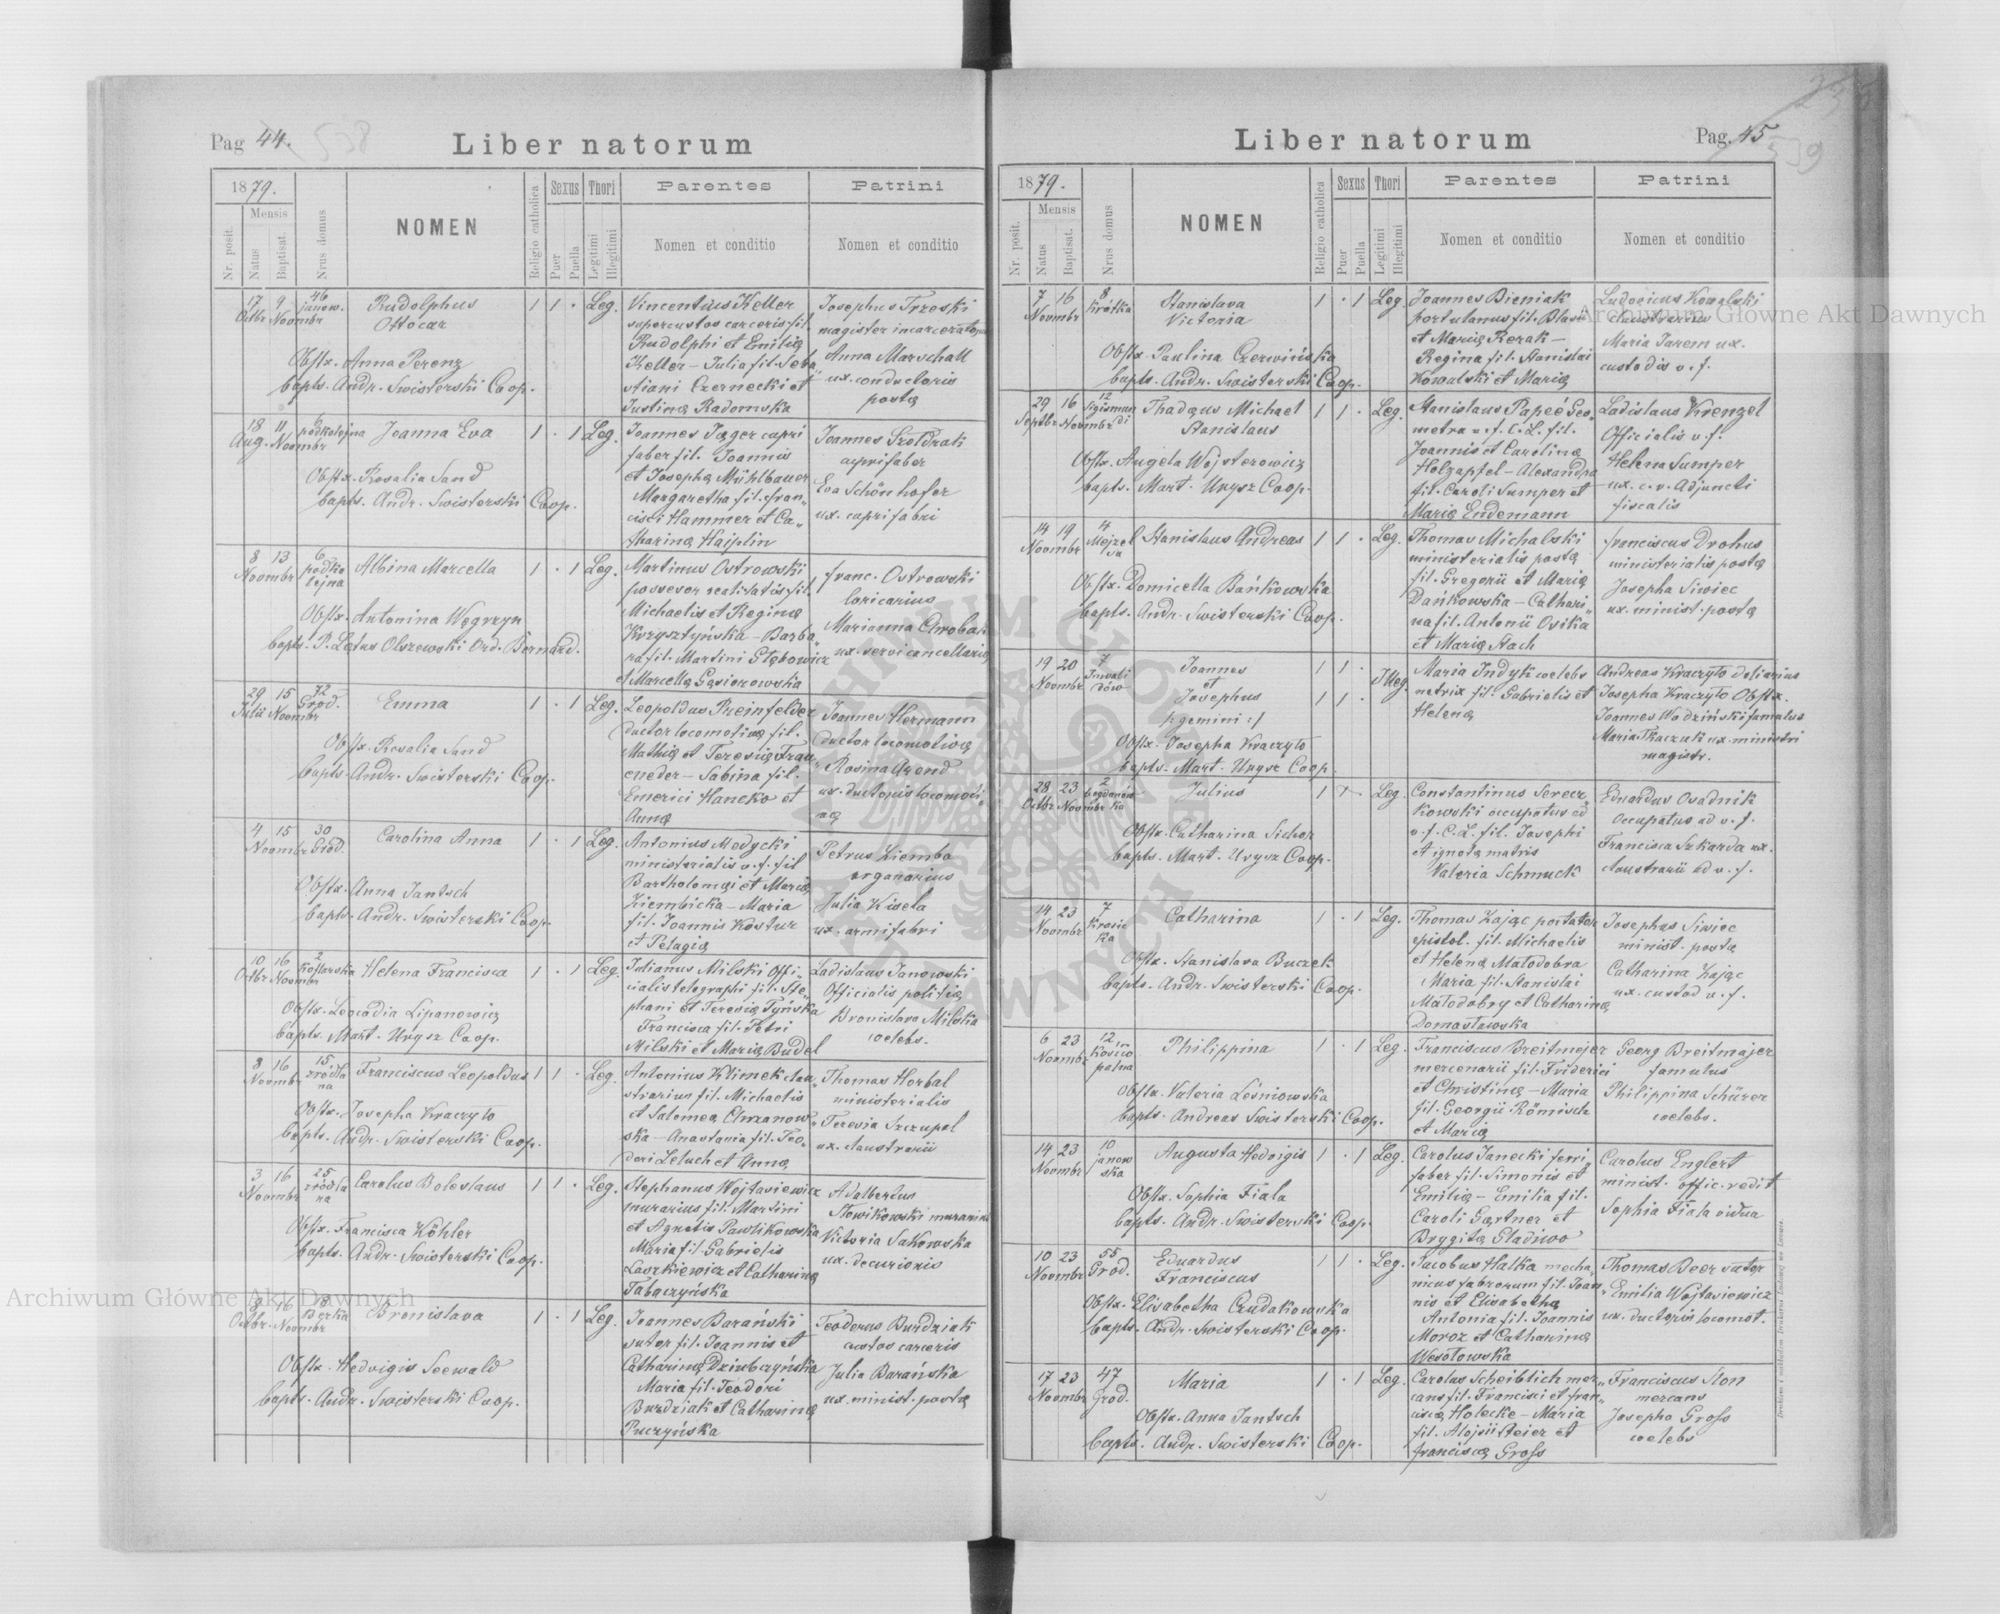 Pag 44. 538
Liber natorum
1879.
Mensis
Nr. posit.
Natus
Baptisat.
Nrus domus
NOMEN
Religio catholica
Sexus
Puer
Puella
Thori
Legitimi
Illegitimi
Parentes
Nomen et conditio
Patrini
Nomen et conditio
17 Octbr 9 Novmbr 46 janow.
Rudolphus
Ottocar
Obstx. Anna Perenz
bapts. Andr. Swisterski Coop.
1 1 · Leg.
Vincentius Keller
supercustos carceris fil.
Rudolphi et Emilię
Keller – Julia fil. Seba
stiani Czernecki et
Justinę Radomska
Josephus Trzeski
magister
Anna Marschall
ux. conductoris
postę
18 Aug. 11 Novmbr 6 podkolejna
Joanna Eva
Obstx. Rosalia Sand
bapts. Andr. Swisterski Coop.
1 · 1 Leg.
Joannes Jæger cupri
faber fil. Joannis
et Josephę Mühlbauer
Margaretha fil. Fran„
cisci Hammer et Ca„
tharinę Hajplin
Joannes Szoldrak
cuprifaber
Eva Schönhofer
ux. cuprifabri
8 13 Novmbr 6 podko lejna
Albina Marcella
Obstx. Antonina Węgrzyn
bapts. P. Lætus Olszewski Ord. Bernard.
1 · 1 Leg.
Martinus Ostrowski
possesor realitatis fil.
Michaelis et Reginę
Krzysztyńska – Barba„
ra fil. Martini Głębowicz
et Marcellę Gąsiorowska
Franc. Ostrowski
loricarius
Marianna Chrobak
ux. servi cancellarię
29 Julii 15 Novmbr 72 Grod.
Emma
Obstx. Rosalia Sand
bapts. Andr. Swisterski Coop.
1 · 1 Leg.
Leopoldus Preinfelder
ductor locomotivę fil.
Mathię et Teresię Frau„
eneder – Sabina fil.
Emerici Hancko et
Annę
Joannes Hermann
ductor locomotivę
Rosina Arend
ux. ductoris locomoti„
vę
4 15 Novmbr 30 Grod.
Carolina Anna
Obstx. Anna Jantsch
bapts. Andr. Swisterski Coop.
1 · 1 Leg.
Antonius Medycki
ministerialis v. f. fil
Bartholomæi et Marię
Ziembicka – Maria
fil. Joannis Kostur
et Pelagię
Petrus Ziemba
organarius
Julia Kisela
ux. armifabri
10 Octbr. 16 Novmbr 2 Koflarska
Helena Francisca
Obstx. Leocadia Lipanowicz
bapts. Mart. Urysz Coop.
1 · 1 Leg.
Julianus Milski Offi„
cialis telegraphi fil. Ste„
phani et Teresię Tyńska
Francisca fil. Petri
Milski et Marię Budel
Ladislaus Janowski
Officialis politię
Bronislava Milska
coelebs.
8 16 Novmbr 15 źródla na
Franciscus Leopoldus
Obstx. Josepha Kraczyto
bapts. Andr. Swisterski Coop.
1 1 · Leg.
Antonius Klimek clau„
strarius fil. Michaelis
et Salomea Chrzanow„
ska – Anastasia fil. Teo„
dori Leluch et Annę
Thomas Horbal
ministerialis
Teresia Szczupel
ux. claustrarii
3 16 Novmbr 25 źródla na
Carolus Boleslaus
Obstx. Francisca Köhler
bapts. Andr. Swisterski Coop.
1 1 · Leg.
Stephanus Wojtasiewicz
murarius fil. Martini
et Agnetis Pawlikowska
Maria fil. Gabrielis
Laszkiewicz et Catharinę
Tabaczyńska
Adalbertus
Słowikowski murarius
Victoria Sakowska
ux. decurionis
8 Octbr. 16 Novmbr 18 Berka
Bronislava
Obstx. Hedvigis Seewald
bapts. Andr. Swisterski Coop.
1 · 1 Leg.
Joannes Barański
sutor fil. Joannis et
Catharinę Dziubczyńska
Maria fil. Teodori
Burdziak et Catharinę
Puczyńska
Teodorus Burdziak
custos carceris
Julia Barańska
ux. minist. postę
Liber natorum
Pag. 45
539
1879.
Mensis
Nr. posit.
Natus
Baptisat.
Nrus domus
NOMEN
Religio catholica
Sexus
Puer
Puella
Thori
Legitimi
Illegitimi
Parentes
Nomen et conditio
Patrini
Nomen et conditio
7 16 Novmbr 8 Krótka
Stanislava
Victoria
Obstx. Paulina Czerwińska
bapts. Andr. Swisterski Coop.
1 · 1 Leg.
Joannes Bieniak
portulanus fil. Blasii
et Marię Rezak –
Regina fil. Stanislai
Kowalski et Marię
Ludovicus Kowalski
claustrarius
Maria Jarem ux.
custodis v. f.
29 Septbr 16 Novmbr 12 Sigismun di
Thadæus Michael
Stanislaus
Obstx. Angela Wojsterowicz
bapts. Mart. Urysz Coop.
1 1 · Leg.
Stanislaus Papeé Geo„
metra v. f. C. L. fil.
Joannis et Carolinę
Holzapfel – Alexandra
fil. Caroli Sumper et
Marię Endemann
Ladislaus Krenzel
Officialis v. f.
Helena Sumper
ux. c. v. Adjuncti
fiscalis
14 19 Novmbr 4 Mejzel sa
Stanislaus Andreas
Obstx. Domicella Bańkowska
bapts. Andr. Swisterski Coop.
1 1 · Leg.
Thomas Michalski
ministerialis postę
fil. Gregorii et Marię
Dańkowska – Cathari„
na fil. Antonii Osika
et Marię Stach
Franciscus Drohus
ministerialis postę
Josepha Siwiec
ux. minist. postę
19 20 Novmbr 7 Inwali dów
Joannes
et
Josephus
/: gemini :/
Obstx. Josepha Kraczyto
bapts. Mart. Urysz Coop
1 1 ·
1 1 · Illeg.
Maria Indyk coelebs
netrix fil. Gabrielis et
Helenę
Andreas Kraczyto doliarius
Josepha Kraczyto Obstx.
Joannes Wodziński famulus
Maria Tkaczuk ux. ministri
magistr.
28 Octbr 23 Novmbr 2 bogdanów ka
Julius
Obstx. Catharina Sicher
bapts. Mart. Urysz Coop.
1 1 – Leg.
Constantinus Serecz„
kowski occupatus ad
v. f. C. L. fil. Josephi
et ignotę matris
Valeria Schmuck
Eduardus Osadnik
occupatus ad v. f.
Francisca Szkarda ux.
claustrarii ad v. f.
14 23 Novmbr 7 Krasic ka
Catharina
Obstx. Stanislava Buczek
bapts. Andr. Swisterski Coop.
1 · 1 Leg.
Thomas Zając portator
epistol. fil. Michaelis
et Helenę Małodobra
Maria fil. Stanislai
Małodobry et Catharinę
Domasławska
Josephus Siwiec
minist. postę
Catharina Zając
ux. custod v. f.
6 23 Novmbr 12
Philippina
Obstx. Valeria Leśniowska
bapts. Andreas Swisterski Coop.
1 · 1 Leg.
Franciscus Breitmejer
mercenarii fil. Friderici
et Christinę – Maria
fil. Georgii Römisch
et Marię
Georg Breitmajer
famulus
Philippina Schürer
coelebs.
14 23 Novmbr 10 janow ska
Augusta Hedvigis
Obstx. Sophia Fiala
bapts. Andr. Swisterski Coop.
1 · 1 Leg.
Carolus Janecki ferri„
faber fil. Simonis et
Emilię – Emilia fil.
Caroli Gærtner et
Brygitę Gladiwo
Carolus Englert
minist. offic. redit
Sophia Fiala vidua
10 23 Novmbr 55 Grod.
Eduardus
Franciscus
Obstx. Elisabetha Czudakowska
bapts. Andr. Swisterski Coop.
1 1 · Leg.
Jacobus Halka mecha„
nicus fabrorum fil. Joan„
nis et Elisabethę
Antonia fil. Joannis
Moroz et Catharinę
Wesołowska
Thomas Beer sutor
Emilia Wojtasiewicz
ux. ductoris locomot.
17 23 Novmbr 47 Grod.
Maria
Obstx. Anna Jantsch
bapts. Andr. Swisterski Coop.
1 · 1 Leg.
Carolus Scheiblich mer„
cans fil. Francisci et Fran„
ciscę Holecke – Maria
fil. Alojsii Reier et
Franciscę Gross
Franciscus Ston
mercans
Josepha Gross
coelebs
Archiwum Główne Akt Dawnych
Archiwum Główne Akt Dawnych
ARCHIWUM GŁÓWNE AKT DAWNYCH